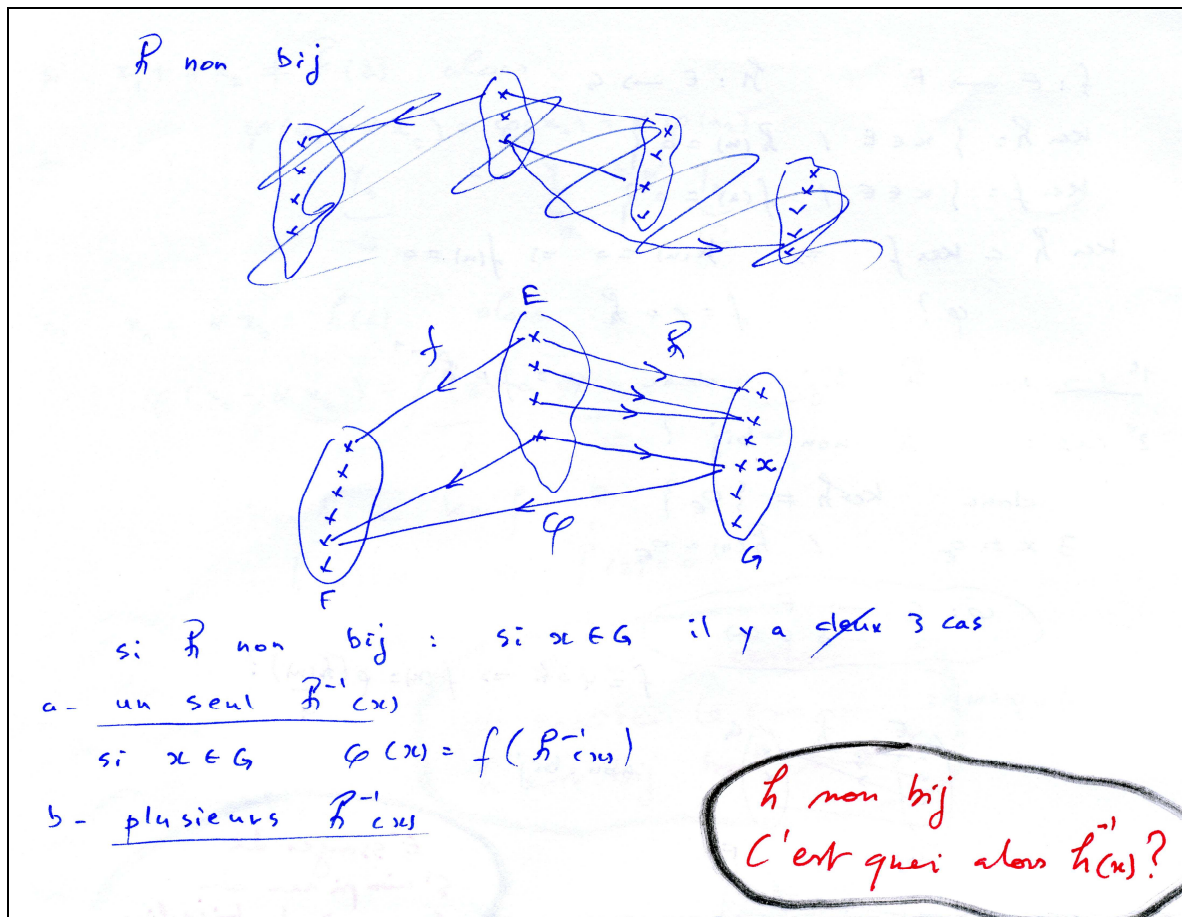 h non bij
E
f
h
x
φ
G
F
si h non bij : si x ∈ G il y a deux 3 cas
a - un seul h⁻¹(x)
si x ∈ G φ(x) = f(h⁻¹(x))
b - plusieurs h⁻¹(x)
h non bij
C'est quoi alors h⁻¹(x)?